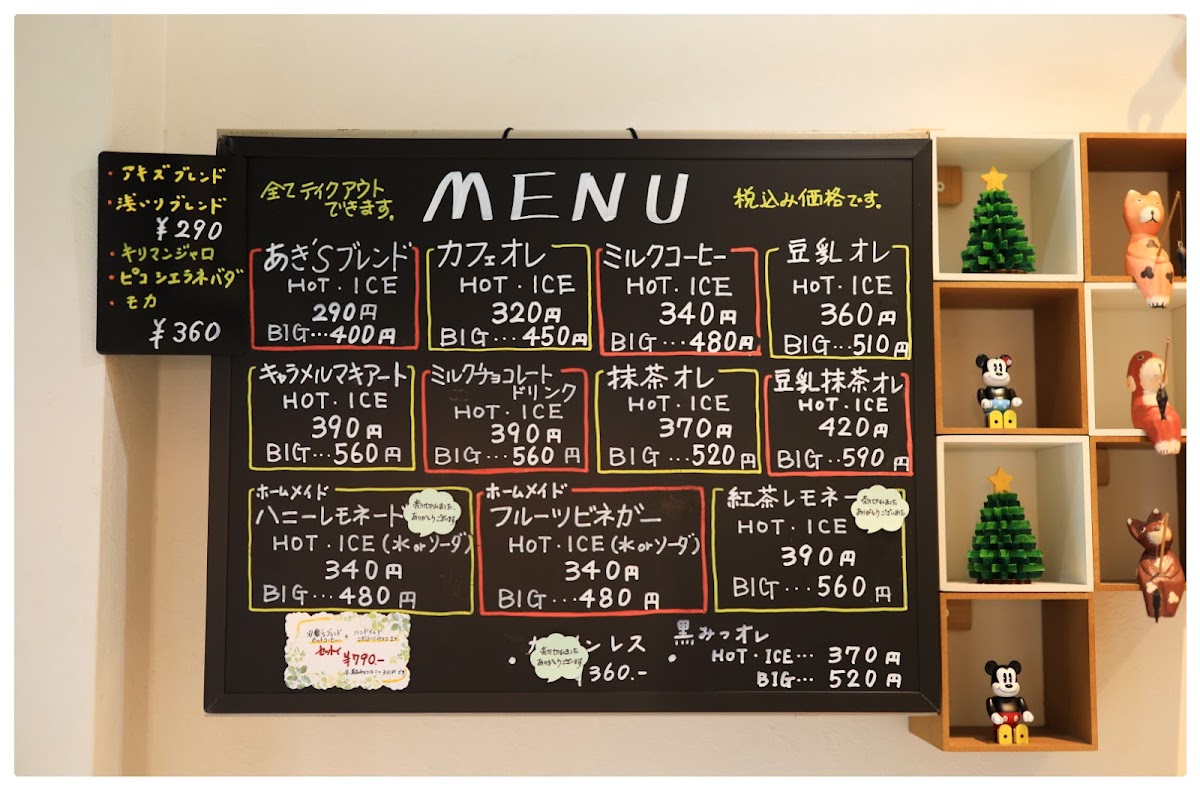 ・アキズブレンド
・浅いりブレンド
¥290
・キリマンジャロ
・ピコ シエラネバダ
・モカ
¥360
全てテイクアウト
できます。
MENU
税込み価格です。
あき'Sブレンド
HOT・ICE
290円
BIG…400円
カフェオレ
HOT・ICE
320円
BIG…450円
ミルクコーヒー
HOT・ICE
340円
BIG…480円
豆乳オレ
HOT・ICE
360円
BIG…510円
キャラメルマキアート
HOT・ICE
390円
BIG…560円
ミルクチョコレート
ドリンク
HOT・ICE
390円
BIG…560円
抹茶オレ
HOT・ICE
370円
BIG…520円
豆乳抹茶オレ
HOT・ICE
420円
BIG‥590円
ホームメイド
ハニーレモネード
売り切れました
ありがとうございます
HOT・ICE(水orソーダ)
340円
BIG…480円
ホームメイド
フルーツビネガー
HOT・ICE(水orソーダ)
340円
BIG…480円
紅茶レモネー
売り切れました
ありがとうございました
HOT・ICE
390円
BIG…560円
ブレンド
セットで
¥790.-
ンレス
売り切れました
ありがとうございます
360.-
・黒みつオレ
HOT・ICE…370円
BIG…520円